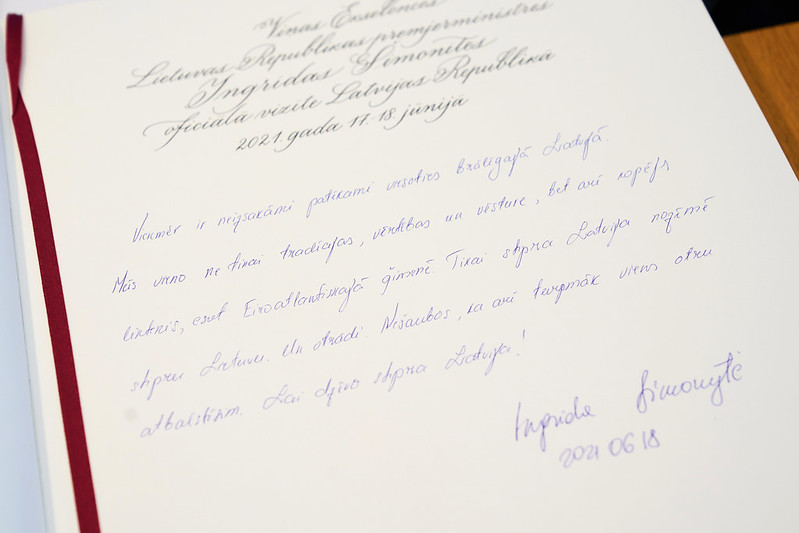 Viņas Ekselences
Lietuvas Republikas premjerministres
Ingridas Šimonītes
oficiālā vizīte Latvijas Republikā
2021. gada 17.-18. jūnijā
Vienmēr ir neizsakāmi patīkami viesoties brālīgajā Latvijā.
Mūs vieno ne tikai tradīcijas, vērtības un vēsture, bet arī kopējs
liktenis, esot Eiroatlantiskajā ģimenē. Tikai stipra Latvija nozīmē
stipru Lietuvu. Un otrādi. Nešaubos, ka arī turpmāk viens otru
atbalstīsim. Lai dzīvo stipra Latvija!
Ingrida Šimonytė
2021 06 18